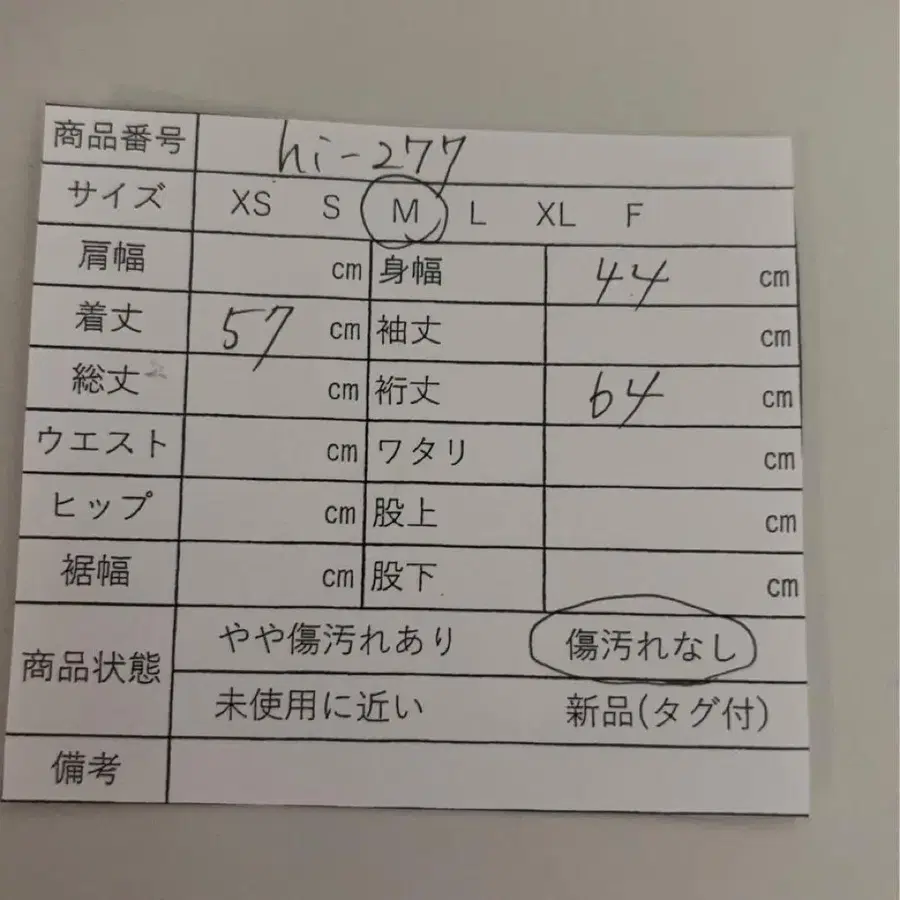 商品番号 hi-277
サイズ XS S M L XL F
肩幅 cm 身幅 44 cm
着丈 57 cm 袖丈 cm
総丈 cm 裄丈 64 cm
ウエスト cm ワタリ cm
ヒップ cm 股上 cm
裾幅 cm 股下 cm
商品状態 やや傷汚れあり 傷汚れなし
未使用に近い 新品(タグ付)
備考